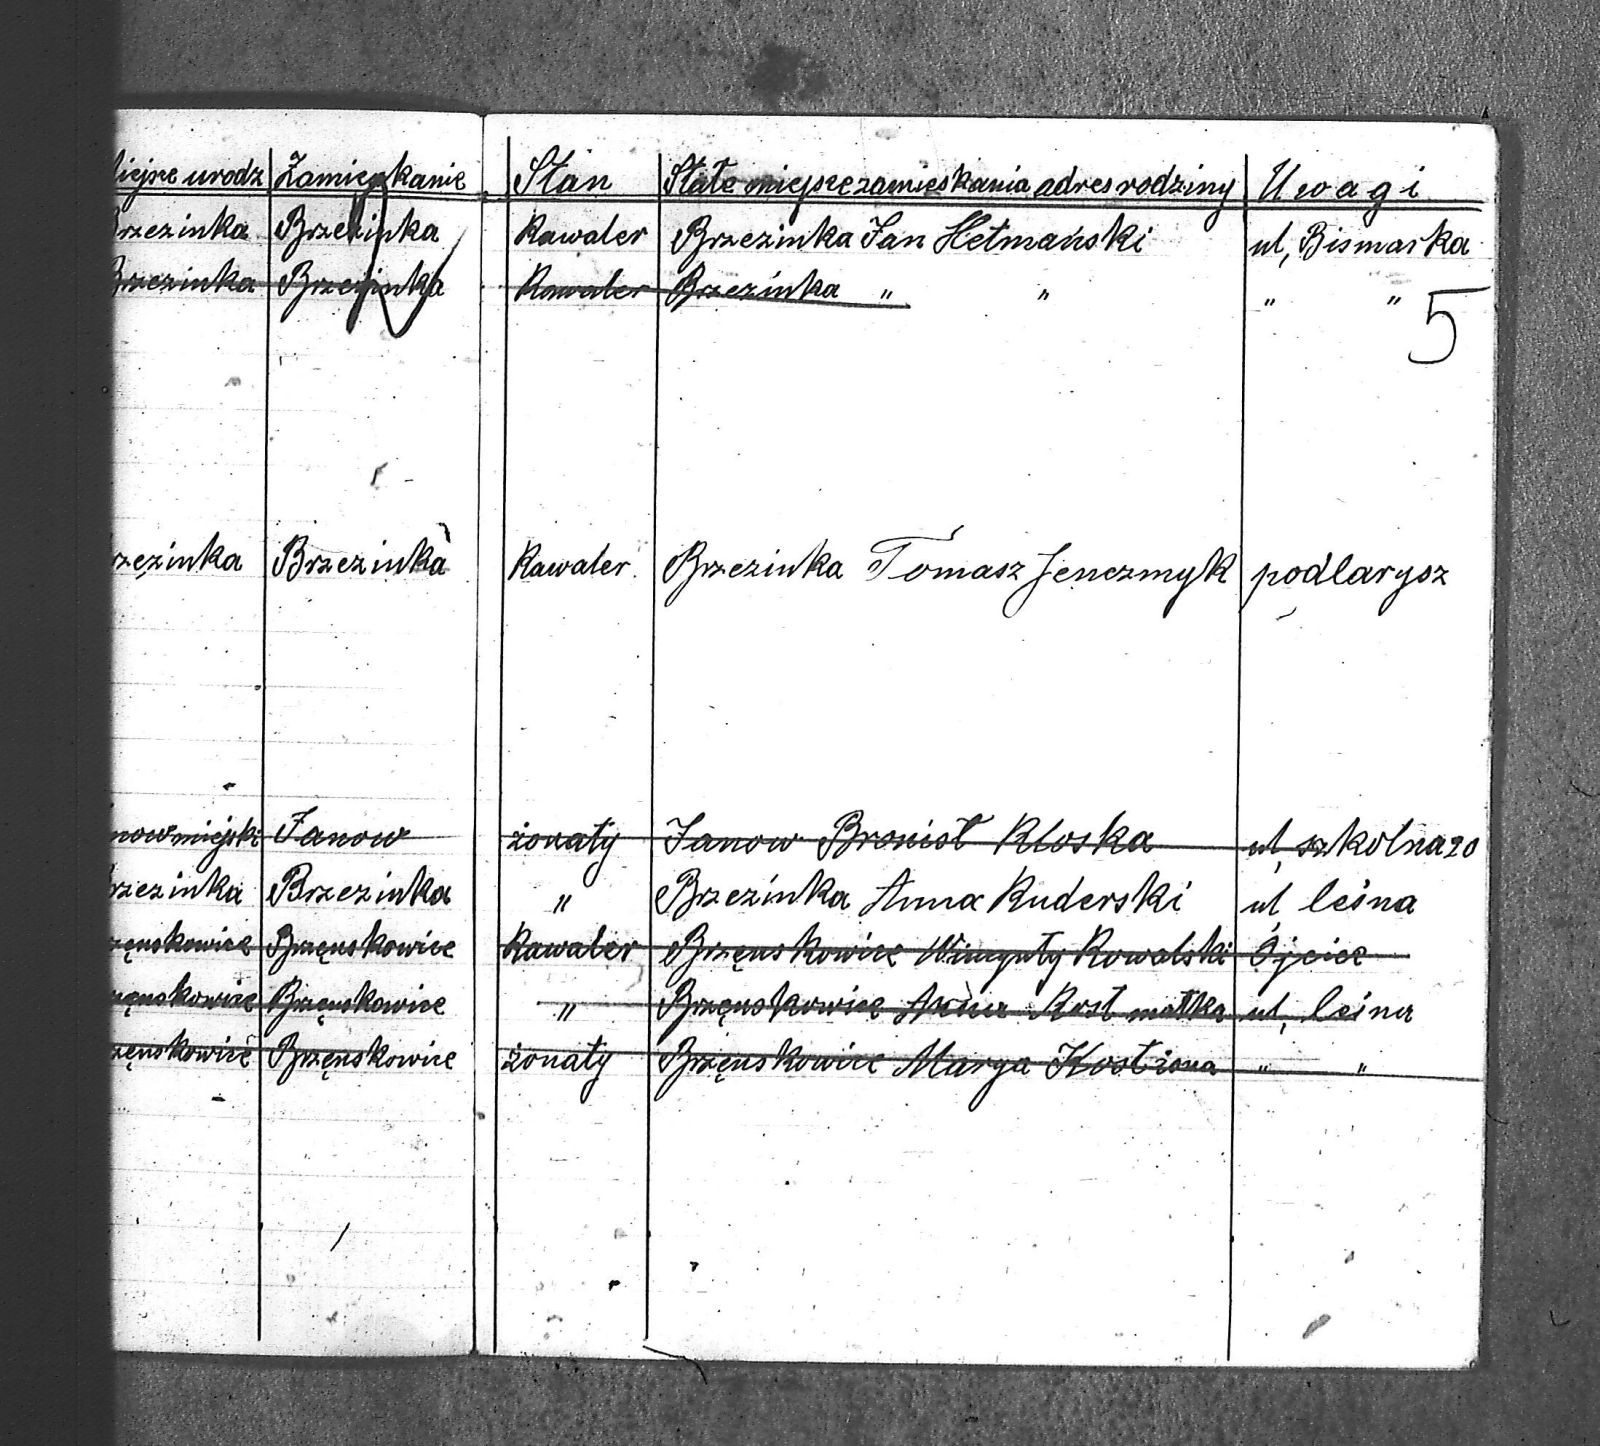 iejsc urodz Zamieszkanie Stan Stałe miejsce zamieskania adres rodziny Uwagi
Brzezinka Brzezinka Kawaler Brzezinka Jan Hetmański ul, Bismarka
Brzezinka Brzezinka Kawaler Brzezinka " " " "
5
rzezinka Brzezinka Kawaler Brzezinka Tomasz Jenczmyk podlarysz
now miejski Janow żonaty Janow Bronisł Kloska ul, szkolna 20
rzezinka Brzezinka " Brzezinka Anna Ruderski ul leśna
zęnskowice Brzęnskowice Kawaler Brzęnskowice Kowalski Ojciec
zęnskowice Brzęnskowice " Brzęnskowice Kost matka ul, leśna
zęnskowice Brzęnskowice żonaty Brzęnskowice Marya Kost żona " "